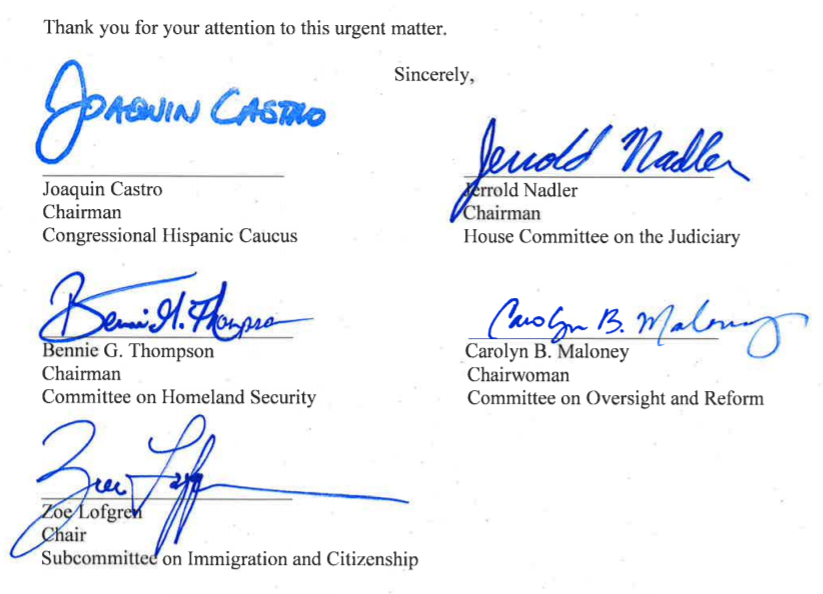 Thank you for your attention to this urgent matter.
Sincerely,
JOAQUIN CASTRO
Joaquin Castro
Chairman
Congressional Hispanic Caucus
Jerrold Nadler
Jerrold Nadler
Chairman
House Committee on the Judiciary
Bennie G. Thompson
Bennie G. Thompson
Chairman
Committee on Homeland Security
Carolyn B. Maloney
Carolyn B. Maloney
Chairwoman
Committee on Oversight and Reform
Zoe
Zoe Lofgren
Chair
Subcommittee on Immigration and Citizenship